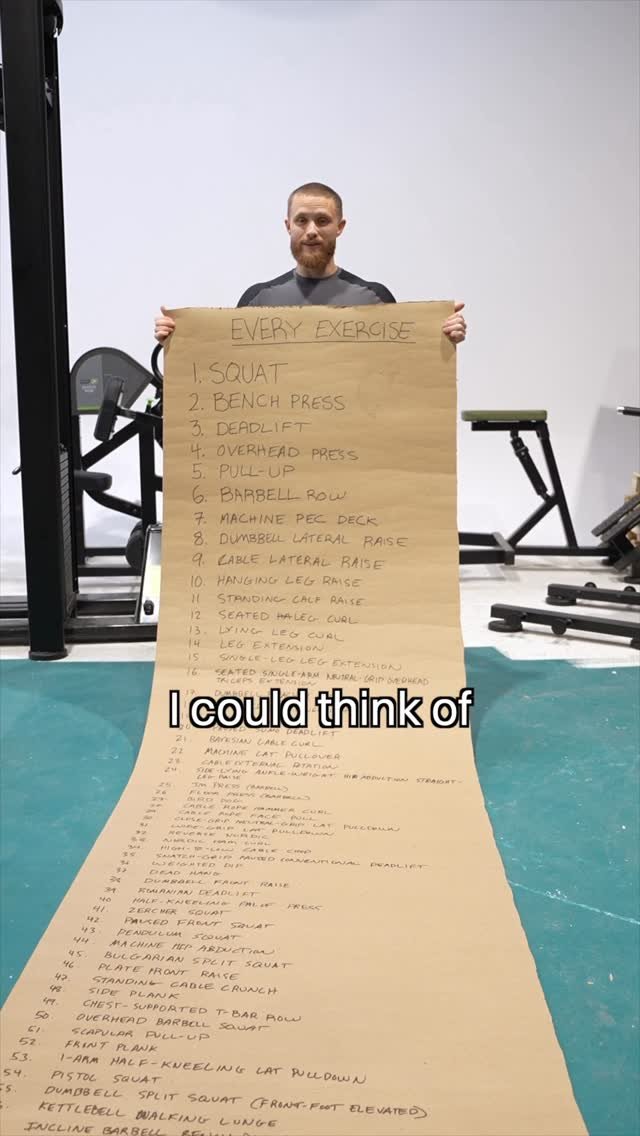 EVERY EXERCISE
1. SQUAT
2. BENCH PRESS
3. DEADLIFT
4. OVERHEAD PRESS
5. PULL-UP
6. BARBELL ROW
7. MACHINE PEC DECK
8. DUMBBELL LATERAL RAISE
9. CABLE LATERAL RAISE
10. HANGING LEG RAISE
11 STANDING CALF RAISE
12 SEATED LEG CURL
13. LYING LEG CURL
14 LEG EXTENSION
15 SINGLE-LEG LEG EXTENSION
16. SEATED SINGLE-ARM NEUTRAL-GRIP OVERHEAD
TRICEPS EXTENSION
17. DUMBBELL
I could think of
20 PAUSED SUMO DEADLIFT
21. BAYESIAN CABLE CURL
22 MACHINE LAT PULLOVER
23. CABLE EXTERNAL ROTATION
24. SIDE-LYING ANKLE-WEIGHT HIP ABDUCTION STRAIGHT-
LEG RAISE
25. JM PRESS (BARBELL)
26 FLOOR PRESS (BARBELL)
27. BIRD DOG
28. CABLE ROPE HAMMER CURL
29. CABLE ROPE FACE PULL
30 CLOSE-GRIP NEUTRAL-GRIP LAT PULLDOWN
31 WIDE-GRIP LAT PULLDOWN
32 REVERSE NORDIC
33. NORDIC HAM CURL
34. HIGH-TO-LOW CABLE CHOP
35 SNATCH-GRIP PAUSED CONVENTIONAL DEADLIFT
36 WEIGHTED DIP
37 DEAD HANG
38 DUMBBELL FRONT RAISE
39. ROMANIAN DEADLIFT
40 HALF-KNEELING PALOF PRESS
41. ZERCHER SQUAT
42. PAUSED FRONT SQUAT
43. PENDULUM SQUAT
44. MACHINE HIP ABDUCTION
45. BULGARIAN SPLIT SQUAT
46. PLATE FRONT RAISE
47. STANDING CABLE CRUNCH
48. SIDE PLANK
49. CHEST-SUPPORTED T-BAR ROW
50. OVERHEAD BARBELL SQUAT
51. SCAPULAR PULL-UP
52. FRONT PLANK
53. 1-ARM HALF-KNEELING LAT PULLDOWN
54. PISTOL SQUAT
55. DUMBBELL SPLIT SQUAT (FRONT-FOOT ELEVATED)
KETTLEBELL WALKING LUNGE
INCLINE BARBELL